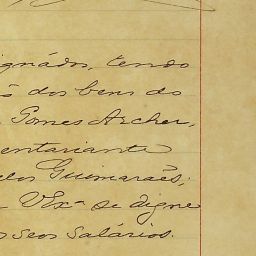 ignádos, tendo
dos bens do
Gomes Archer,
entariante
Guimarães,
VExª se digne
seos salários.